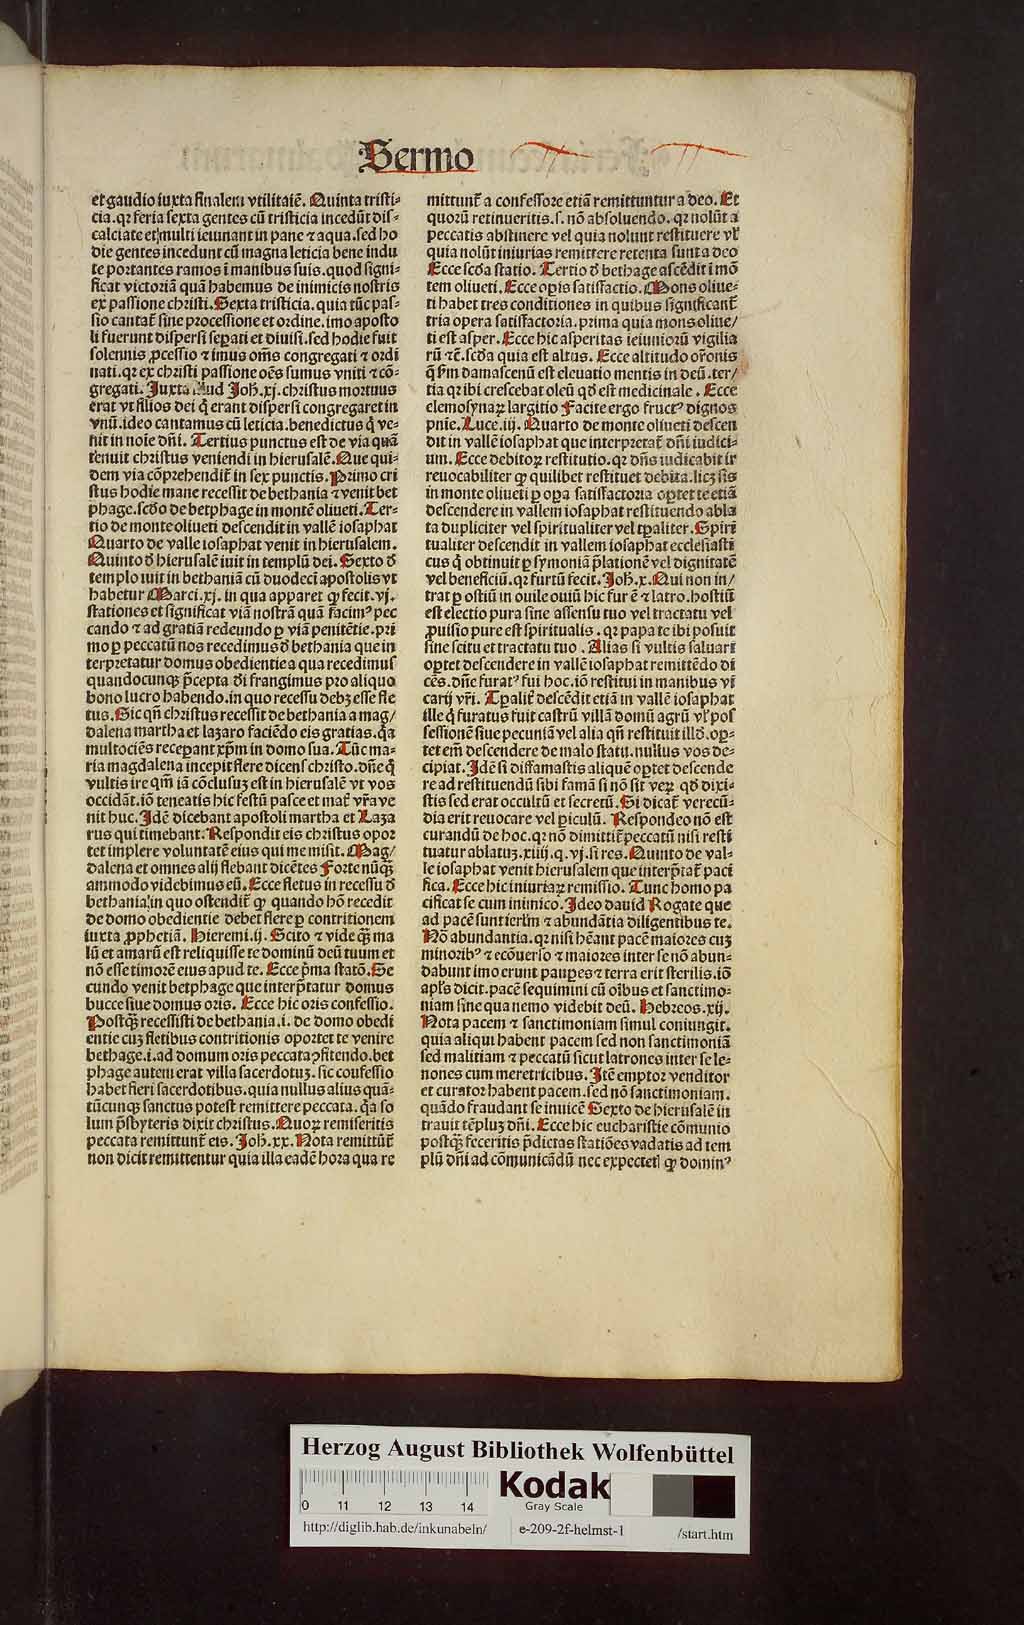 Sermo
et gaudio iuxta finalem vtilitatē. Quinta tristi-
cia. qr feria sexta gentes cū tristicia incedūt dis-
calciate et multi ieiunant in pane ⁊ aqua. sed ho
die gentes incedunt cū magna leticia bene indu
te portantes ramos ī manibus suis. quod signi-
ficat victoriā quā habemus de inimicis nostris
ex passione christi. Sexta tristicia. quia tūc pas-
sio cantat̄ sine processione et ordine. imo aposto
li fuerunt dispersi sepati et diuisi. sed hodie fuit
solennis ꝓcessio ⁊ imus om̄s congregati ⁊ ordi
nati. qr ex christi passione oēs sumus vniti ⁊ cō-
gregati. Juxta illud Joh̄. xj. christus mortuus
erat vt filios dei q̄ erant dispersi congregaret in
vnū. ideo cantamus cū leticia. benedictus q̄ ve-
nit in noie dn̄i. Tertius punctus est de via quā
tenuit christus veniendi in hierusalē. Que qui-
dem via cōprehendit̄ in sex punctis. Primo cri
stus hodie mane recessit de bethania ⁊ venit bet
phage. scd̄o de betphage in montē oliueti. Ter-
tio de monte oliueti descendit in vallē iosaphat
Quarto de valle iosaphat venit in hierusalem.
Quinto d̄ hierusalē iuit in templū dei. Sexto d̄
templo iuit in bethaniā cū duodecī apostolis vt
habetur Marci. xj. in qua apparet ꝙ fecit. vj.
stationes et significat viā nostrā quā facimꝰ pec
cando ⁊ ad gratiā redeundo ꝑ viā penitētie. pri
mo ꝑ peccatū nos recedimus d̄ bethania que in
terpretatur domus obedientie a qua recedimus
quandocunqꝫ p̄cepta d̄i frangimus pro aliquo
bono lucro habendo. in quo recessu debꝫ esse fle
tus. Sic qn̄ christus recessit de bethania a mag/
dalena martha et lazaro faciēdo eis gratias. q̄a
multociēs recepant xp̄m in domo sua. Tūc ma-
ria magdalena incepit flere dicens christo. dn̄e q̄
vultis ire qm̄ iā cōclusuꝫ est in hierusalē vt vos
occidāt. iō teneatis hic festū pasce et mat̄ vr̄a ve
nit huc. Idē dicebant apostoli martha et Laza
rus qui timebant. Respondit eis christus opor
tet implere voluntatē eius qui me misit. Mag/
dalena et omnes alij flebant dicētes Forte nūqꝫ
ammodo videbimus eū. Ecce fletus in recessu d̄
bethania. in quo ostendit̄ ꝙ quando hō recedit
de domo obedientie debet flere ꝑ contritionem
iuxta ꝓphetiā. Hieremi. ij. Scito ⁊ vide qꝫ ma
lū et amarū est reliquisse te dominū deū tuum et
nō esse timorē eius apud te. Ecce p̄ma statō. Se
cundo venit betphage que interp̄tatur domus
bucce siue domus oris. Ecce hic oris confessio.
Postqꝫ recessisti de bethania. i. de domo obedi
entie cuꝫ fletibus contritionis oportet te venire
bethage. i. ad domum oris peccata ꝯfitendo. bet
phage autem erat villa sacerdotuꝫ. sic confessio
habet fieri sacerdotibus. quia nullus alius quā-
tūcunqꝫ sanctus potest remittere peccata. q̄a so
lum p̄sbyteris dixit christus. Quoꝝ remiseritis
peccata remittunt̄ eis. Joh̄. xx. Nota remittūt̄
non dicit remittentur quia illa eadē hora qua re
mittunt̄ a confessore etiā remittuntur a deo. Et
quorū retinueritis. s. nō absoluendo. qr nolūt a
peccatis abstinere vel quia nolunt restituere vl̄
quia nolūt iniurias remittere retenta sunt a deo
Ecce scd̄a statio. Tertio d̄ bethage ascēdit ī mō
tem oliueti. Ecce oꝑis satisfactio. Mons oliue-
ti habet tres conditiones in quibus significant̄
tria opera satisfactoria. prima quia mons oliue/
ti est asper. Ecce hic asperitas ieiuniorū vigilia
rū ⁊c̄. scd̄a quia est altus. Ecce altitudo or̄onis
q̄ fm̄ damascenū est eleuatio mentis in deū. ter/
tia qr ibi crescebat oleū qd̄ est medicinale. Ecce
elemosynaꝝ largitio Facite ergo fructꝰ dignos
pnīe. Luce. iij. Quarto de monte oliueti descen
dit in vallē iosaphat que interpretat̄ dn̄i iudici-
um. Ecce debitoꝝ restitutio. qr dn̄s iudicabit ir
reuocabiliter ꝙ quilibet restituet debita. licꝫ sis
in monte oliueti ꝑ oꝑa satisfactoria oꝑtet te etiā
descendere in vallem iosaphat restituendo abla
ta dupliciter vel spiritualiter vel tꝑaliter. Spiri
tualiter descendit in vallem iosaphat ecclesiasti
cus q̄ obtinuit ꝑ symoniā p̄lationē vel dignitatē
vel beneficiū. qr furtū fecit. Joh̄. x. Qui non in/
trat ꝑ ostiū in ouile ouiū hic fur ē ⁊ latro. hostiū
est electio pura sine assensu tuo vel tractatu vel
ꝓuisio pure est spiritualis. qr papa te ibi posuit
sine scitu et tractatu tuo. Alias si vultis saluari
oꝑtet descendere in vallē iosaphat remittēdo di
cēs. dn̄e furatꝰ fui hoc. iō restitui in manibus vr̄
carij vr̄i. Tꝑalit̄ descēdit etiā in vallē iosaphat
ille q̄ furatus fuit castrū villā domū agrū vl̄ pos
sessionē siue pecuniā vel alia qn̄ restituit illd̄. oꝑ-
tet em̄ descendere de malo statu. nullus vos de-
cipiat. Idē si diffamastis aliquē oꝑtet descende
re ad restituendū sibi famā si nō sit veꝝ qd̄ dixi-
stis sed erat occultū et secretū. Si dicat̄ verecū-
dia erit reuocare vel ꝑiculū. Respondeo nō est
curandū de hoc. qr nō dimittit̄ peccatū nisi resti
tuatur ablatuꝫ. xiiij. q. vj. si res. Quinto de val-
le iosaphat venit hierusalem que interp̄tat̄ paci
fica. Ecce hic iniuriaꝝ remissio. Tunc homo pa
cificat se cum inimico. Ideo dauid Rogate que
ad pacē sunt ierl̄m ⁊ abundātia diligentibus te.
Nō abundantia. qr nisi hēant pacē maiores cuꝫ
minoribꝰ ⁊ ecōuerso ⁊ maiores inter se nō abun-
dabunt imo erunt pauꝑes ⁊ terra erit sterilis. iō
apl̄s dicit. pacē sequimini cū oībus et sanctimo-
niam sine qua nemo videbit deū. Hebreos. xij.
Nota pacem ⁊ sanctimoniam simul coniungit.
quia aliqui habent pacem sed non sanctimoniā
sed malitiam ⁊ peccatū sicut latrones inter se le-
nones cum meretricibus. Itē emptor venditor
et curator habent pacem. sed nō sanctimoniam.
quādo fraudant se inuicē Sexto de hierusalē in
trauit tēpluꝫ dn̄i. Ecce hic eucharistie cōmunio
postqꝫ feceritis p̄dictas statiōes vadatis ad tem
plū dn̄i ad cōmunicādū nec expectet̄ ꝙ dominꝰ
Herzog August Bibliothek Wolfenbüttel
0 11 12 13 14
Kodak
Gray Scale
http://diglib.hab.de/inkunabeln/ e-209-2f-helmst-1 /start.htm